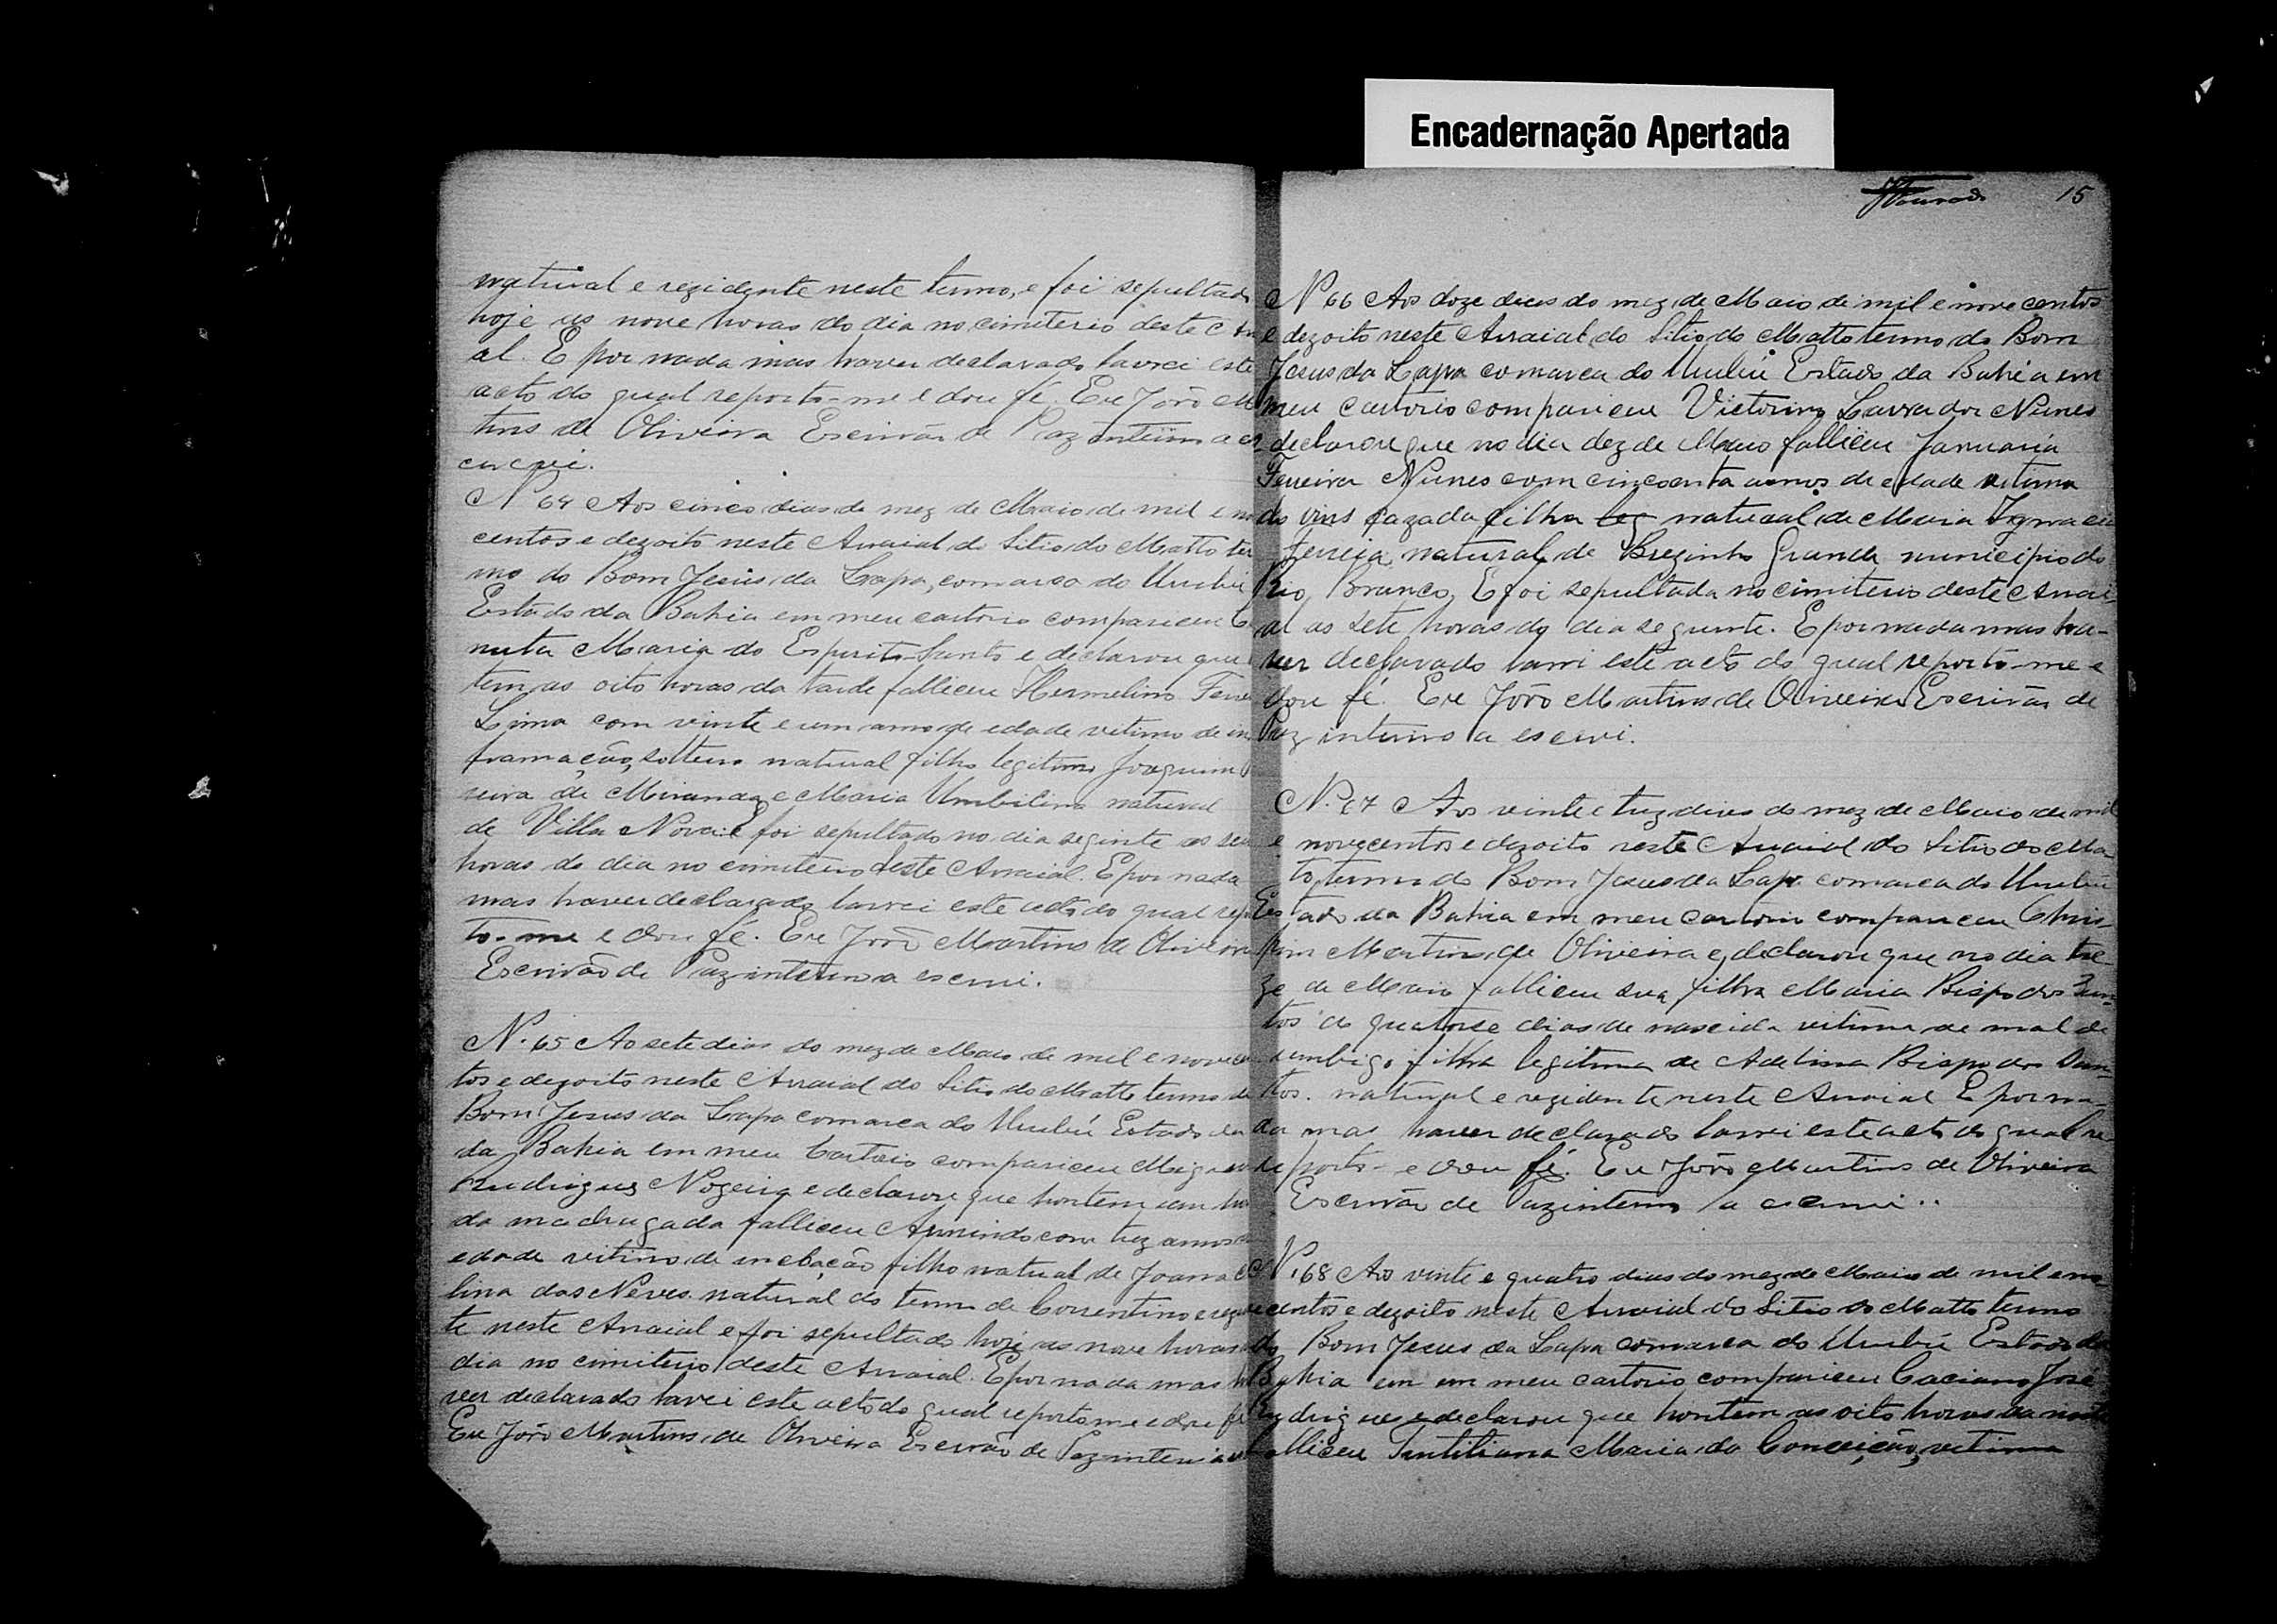 Encadernação Apertada
natural e rezidente neste termo, e foi sepultado
hoje as nove horas do dia no cimiterio deste Arra
al. E por nada mas haver declarado lavrei este
acto do qual reporto-me e dou fé. Eu João Mar
tins de Oliveira Escrivão de Paz interino a es
crevi.
N 64 Aos cinco dias do mez de Maio de mil e no
centos e dezoito neste Arraial do Sitio do Matto ter
mo do Bom Jesus da Lapa, comarca do Urubú
Estado da Bahia em meu cartorio compariceu
Maria do Espirito Santo e declarou que
tem as oito horas da tarde falliceu Hermelino
Lima com vinte e um anno de edade vitimo de in
framação, solteiro natural filho legitimo Joaquim
reira de Miranda e Maria Umbilina natural
de Villa Nova. E foi sepultado no dia seginte as
horas do dia no cimiterio deste Arraial. E por nada
mas haver declarado lavrei este acto do qual repor
to-me e dou fé. Eu João Martins de Oliveira
Escrivão de Paz interino a escrevi.
N. 65 Ao sete dias do mez de Maio de mil e novecen
tos e dezoito neste Arraial do Sitio do Matto termo do
Bom Jesus da Lapa comarca do Urubú Estado da
da Bahia em meu Cartorio compariceu
Rudrigues Nogeira e declarou que hontem uma
da madrugada falliceu Arnindo com trez annos
edade vitimo de filho natural de Joanna
lina das Neves. natural do termo de Correntina e
te neste Arraial e foi sepultado hoje as nove horas do
dia no cimiterio deste Arraial. E por nada mas
ver declarado lavrei este acto do qual reporto me e dou fé
Eu João Martins de Oliveira Escrivão de Paz interi
15
N 66 Aos doze dias do mez de Maio de mil e nove centos
e dezoito neste Arraial do Sitio do Matto termo do Bom
Jesus da Lapa comarca do Urubú Estado da Bahia em
meu cartorio compariceu Victorino Lavrador Nunes
declarou que no dia dez de Maio falliceu Januaria
Ferreira Nunes com cincoenta annos de edade vitima
do cazada filha leg natural de Maria Ignacia
natural de Brezinho Grande municipio do
Rio Branco, E foi sepultada no cimiterio deste Arrai-
al as sete horas do dia seguinte. E por nada mas ha-
ver declarado lavri este acto do qual reporto-me e
dou fé. Eu João Martins de Oliveira Escrivão de
Paz interino a escrvi.
N. 67 Aos vinte e trez dias do mez de Maio de mil
e novecentos e dezoito neste Arraial do Sitio do Ma-
to, termo do Bom Jesus da Lapa comarca do Urubú
Estado da Bahia em meu cartorio compariceu Chris-
pim Martins de Oliveira e declarou que no dia tre-
ze de Maio falliceu sua filha Maria Bispo dos San-
tos de quatorse dias de nascida vitima de mal de
umbigo filha legitima de Adelina Bispo dos San-
tos. natural e rezidente neste Arraial E por na-
da mas haver declarado lavrei este acto do qual re
reporto- e dou fé. Eu João Martins de Oliveira
Escrivão de Paz interino a escrevi..
N. 68 Aos vinte e quatro dias do mez de Maio de mil e no
centos e dezoito neste Arraial do Sitio do Matto termo
do Bom Jesus da Lapa comarca do Urubú Estado da
Bahia em em meu cartorio compariceu Caciano José
Rudrigues e declarou que hontem as oito horas da noite
falliceu Maria da Conceição, vitima